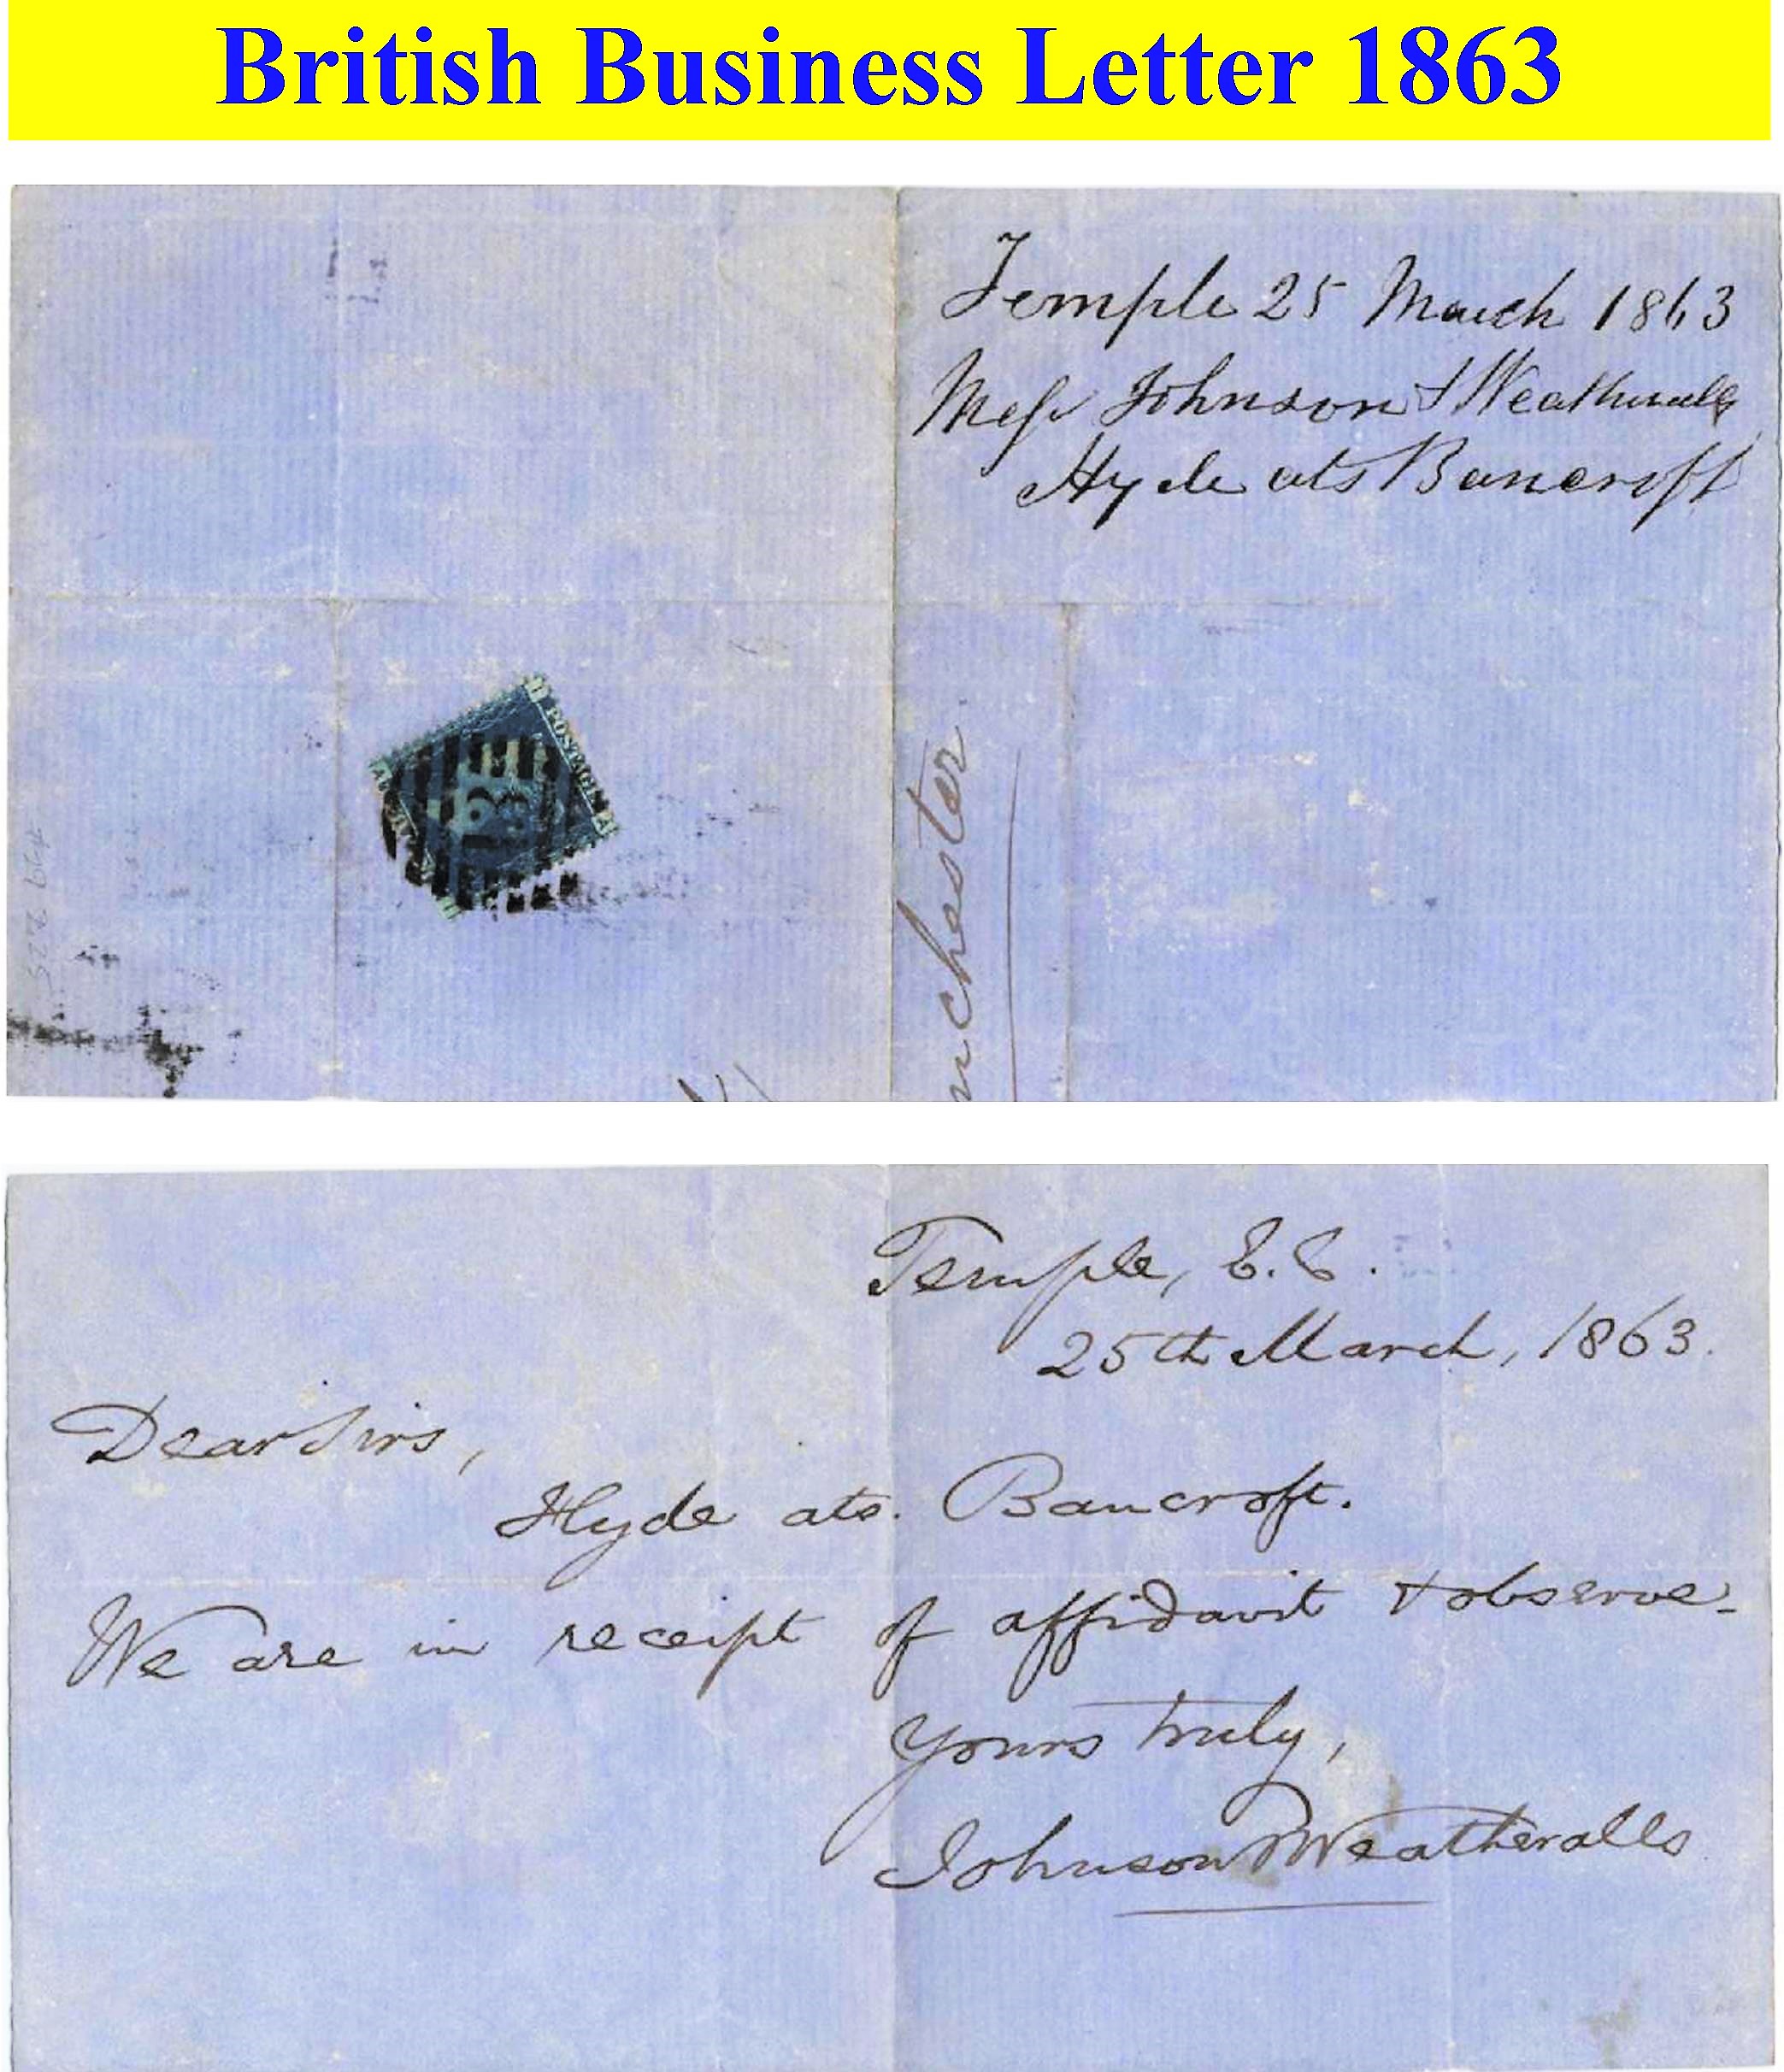 British Business Letter 1863
Temple 25 March 1863
Messr Johnson & Weatheralls
Hyde ats Bancroft
POSTAGE
nchester
Temple, E.C.
25th March, 1863.
Dear Sirs,
Hyde ats. Bancroft.
We are in receipt of affidavit & observe.
Yours truly,
Johnson & Weatheralls